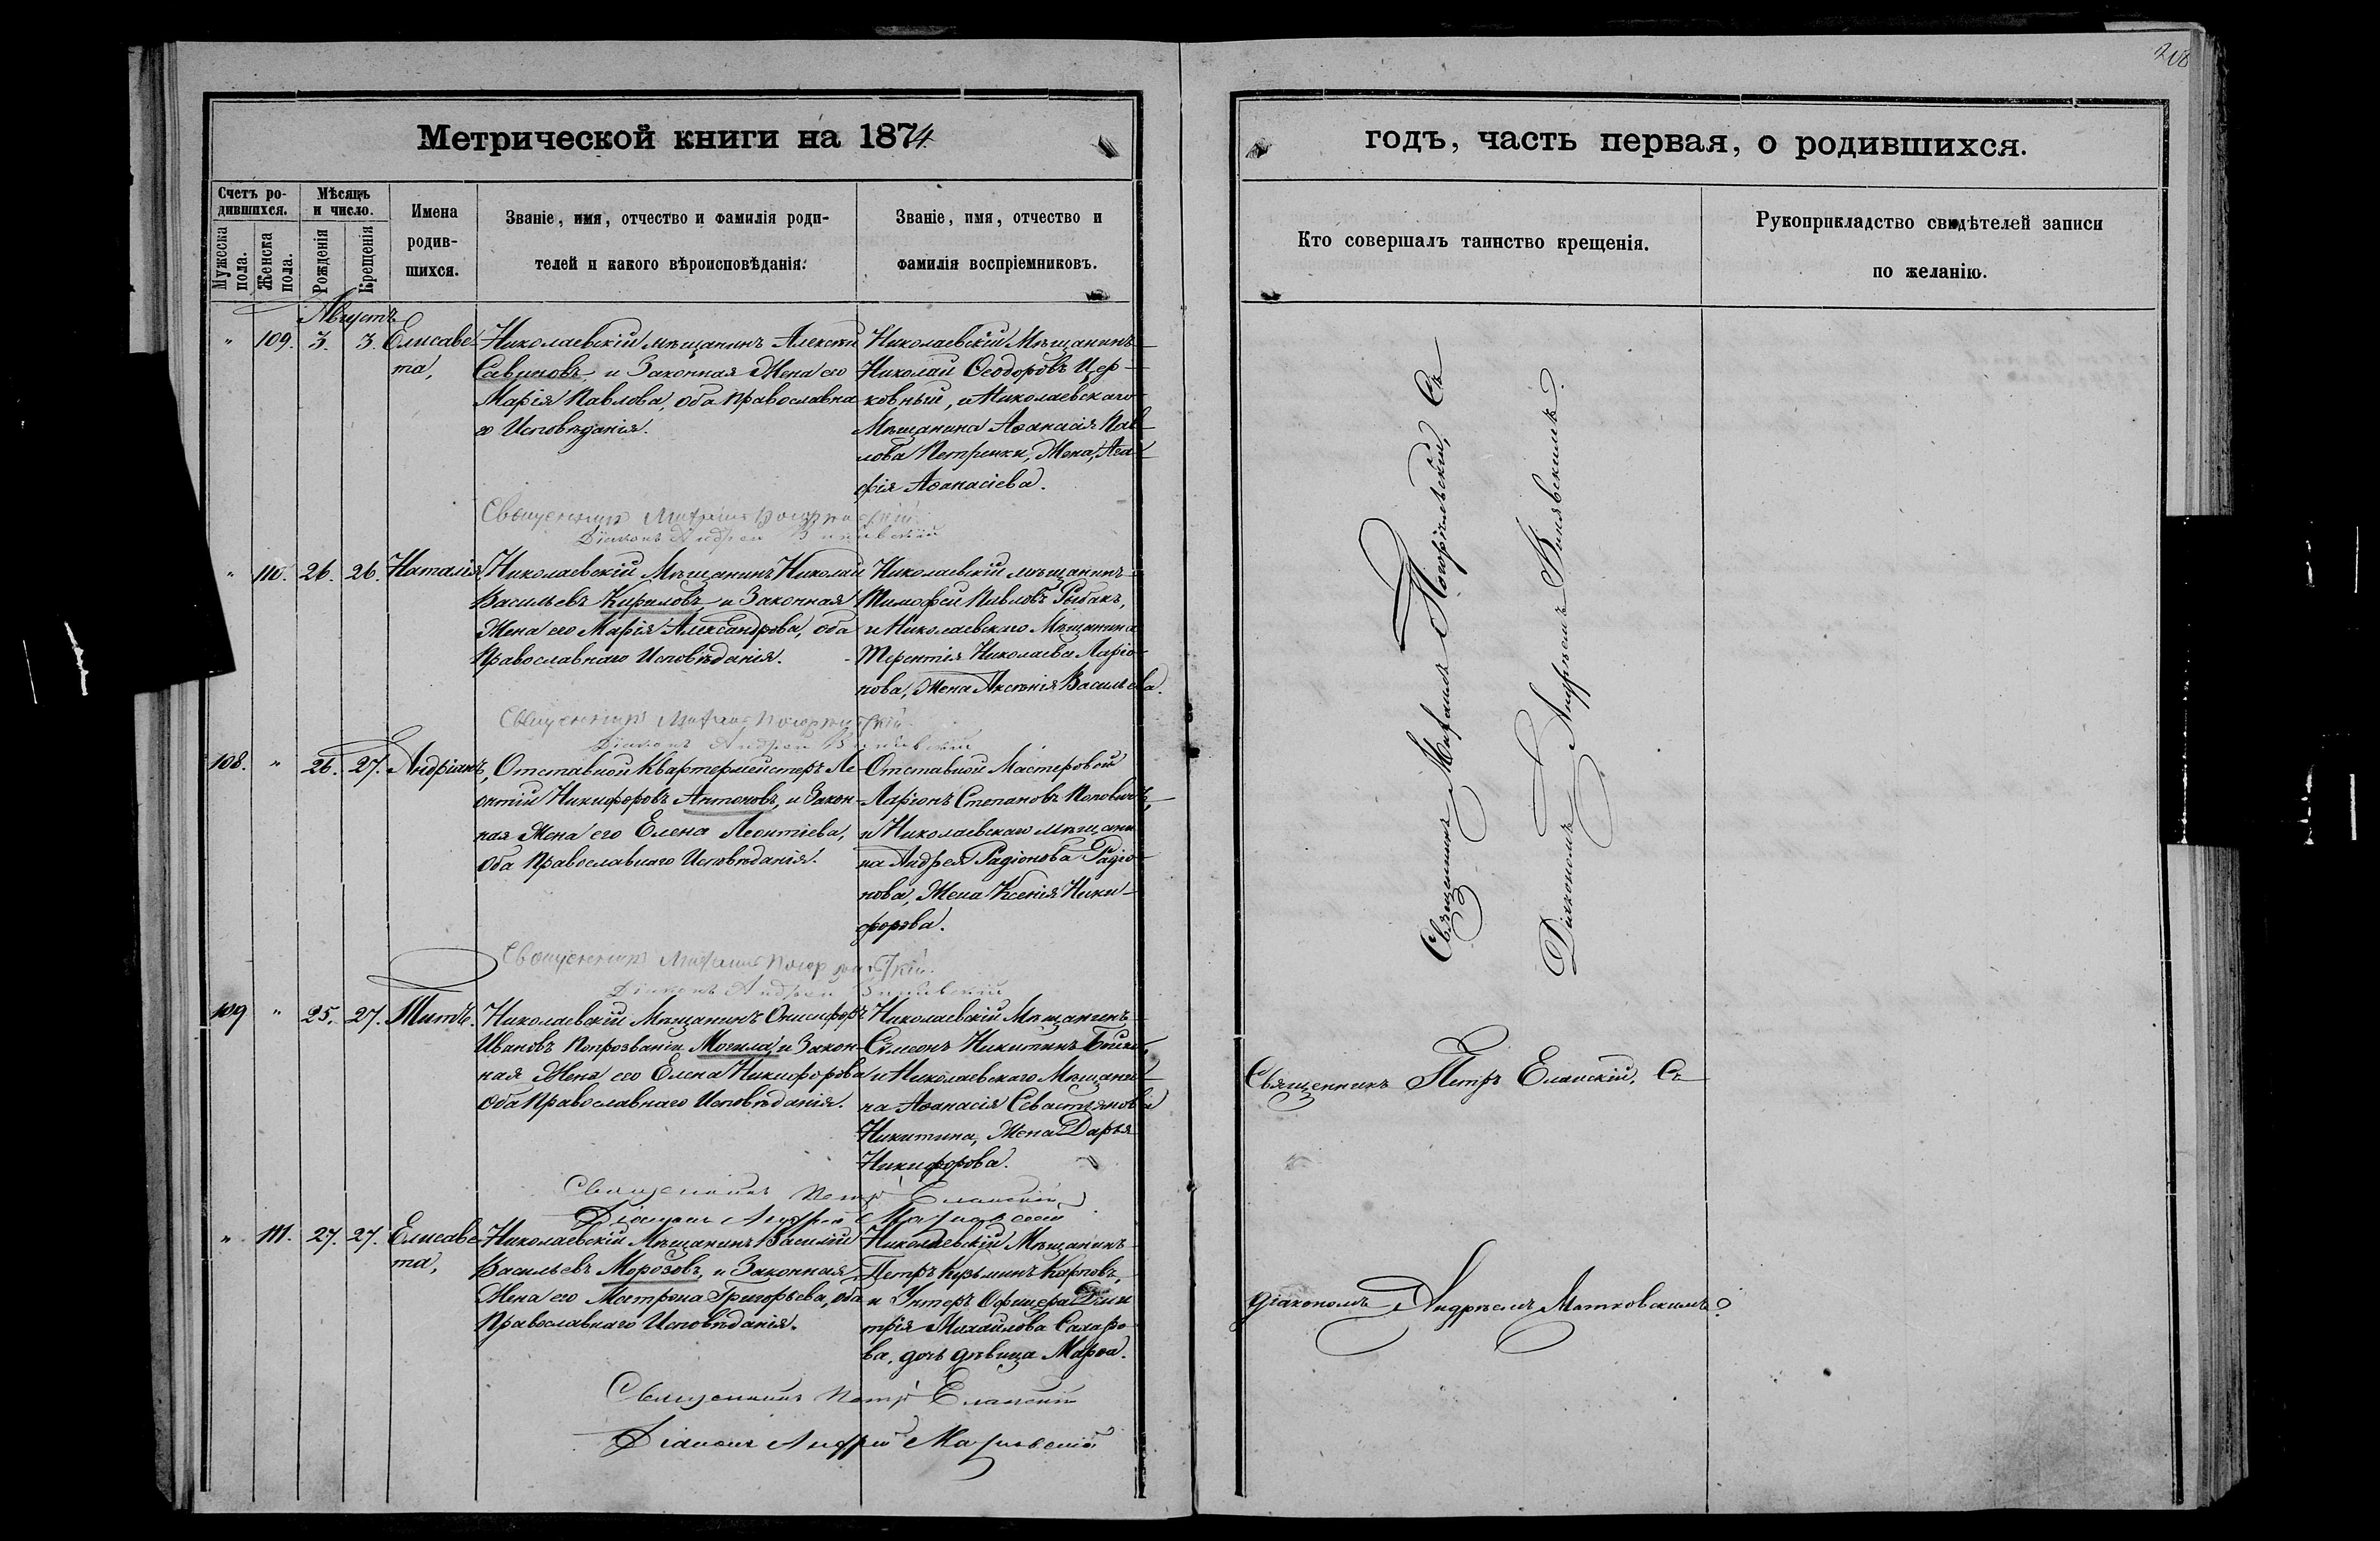 208
Метрической книги на 1874
годъ, часть первая, о родившихся.
Счетъ ро-
дившихся.
Мужеска пола.
Женска пола.
Мѣсяцъ
и число.
Рожденія
Крещенія
Имена
родив-
шихся.
Званіе, имя, отчество и фамилія роди-
телей и какого вѣроисповѣданія.
Званіе, имя, отчество и
фамилія воспріемниковъ.
Кто совершалъ таинство крещенія.
Рукоприкладство свидѣтелей записи
по желанію.
Августъ
" 109. 3. 3. Елисаве-
та,
Николаевскій мѣщанинъ Алексѣй
Савиновъ, и Законная Жена его
Марія Павлова, оба православна
го Исповѣданія.
Николаевскій Мѣщанинъ
Николай Ѳеодоровъ Цер-
ковный, и Николаевскаго
Мѣщанина Аѳанасія Пав
лова Петринки, Жена, Ага
фія Аѳанасіева.
Священникъ Михаилъ
Діаконъ Андрей
" 110. 26. 26. Наталія,
Николаевскій Мѣщанинъ Николай
Васильевъ Кириловъ, и Законная
Жена его Марія Александрова, оба
Православнаго Исповѣданія.
Николаевскій мѣщанинъ
Тимофей Павловъ Рыбакъ,
и Николаевскаго Мѣщанина
Терентія Николаева Ларіо-
нова, Жена Аксенія Васильева.
Священникъ Михаилъ
Діаконъ Андрей
108. " 26. 27. Андріанъ,
Отставной Квартермейстеръ Ле-
онтій Никифоровъ Антоновъ, и Закон-
ная Жена его Елена Леонтіева,
Оба Православнаго Исповѣданія.
Отставной Мастеровой
Ларіонъ Степановъ Поповичъ,
и Николаевскаго мѣщани
на Андрея Радіонова Радіо-
нова, Жена Ксенія Ники-
форова.
Священникъ Михаилъ
Діаконъ Андрей
109 " 25. 27. Титъ.
Николаевскій Мѣщанинъ Онисифоръ
Ивановъ попрозванію Могила, и Закон-
ная Жена его Елена Никифорова
Оба Православнаго Исповѣданія.
Николаевскій Мѣщанинъ
Сѵмеонъ Никитинъ
и Николаевскаго Мѣщани-
на Аѳанасія Севастьянова
Никитина, Жена Дарья
Никифорова.
Священникъ Петръ Еланскій
Діаконъ Андрей
" 111. 27. 27. Елисаве-
та,
Николаевскій Мѣщанинъ Василій
Васильевъ Морозовъ, и Законная
Жена его Матрона Григорьева, оба
Православнаго Исповѣданія.
Николаевскій Мѣщанинъ
Петръ Кузьминъ Карповъ,
и Унтеръ Офицера Дми
трія Михайлова Сахаро-
ва, дочь дѣвица Марѳа.
Священникъ Петръ Еланскій
Діаконъ Андрей
Священникъ Михаилъ Погорѣльскій, Съ
Діакономъ Андреемъ
Священникъ Петръ Еланскій, Съ
діакономъ Андреемъ Матковскимъ